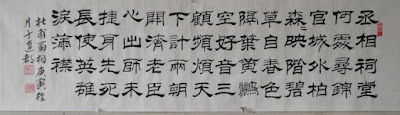 丞相祠堂
何處尋錦
官城外柏
森々映階碧
草自春色
隔葉黃鸝
空好音三
顧頻煩天
下計兩朝
開濟老臣
心出師未
捷身先死
長使英雄
淚滿襟
杜甫蜀相庚寅桂
月于